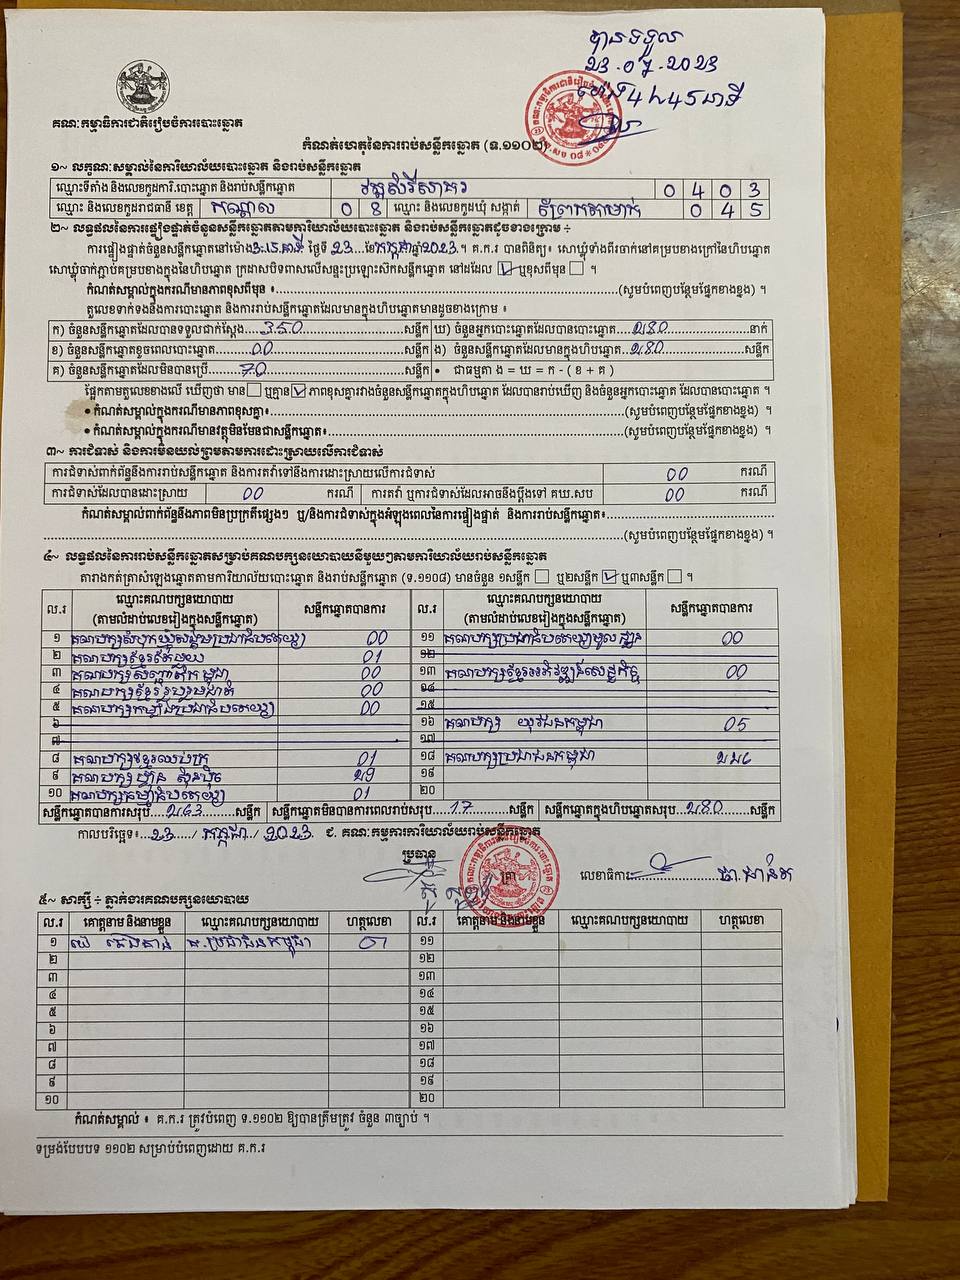 បានទទួល
23.07.2023
ម៉ោង 4 h 45 នាទី
គណៈកម្មាធិការជាតិរៀបចំការបោះឆ្នោត
កំណត់ហេតុនៃការរាប់សន្លឹកឆ្នោត (ទ.១១០២)
១~ លក្ខណៈសម្គាល់នៃការិយាល័យបោះឆ្នោត និងរាប់សន្លឹកឆ្នោត
ឈ្មោះទីតាំង និងលេខកូដការិ.បោះឆ្នោត និងរាប់សន្លឹកឆ្នោត វត្តសំរីសាគរ 0 4 0 3
ឈ្មោះ និងលេខកូដរាជធានី ខេត្ត កណ្តាល 0 8 ឈ្មោះ និងលេខកូដឃុំ សង្កាត់ ព្រែកតាមាក់ 0 4 5
២~ លទ្ធផលនៃការផ្ទៀងផ្ទាត់ចំនួនសន្លឹកឆ្នោតតាមការិយាល័យបោះឆ្នោត និងរាប់សន្លឹកឆ្នោតដូចខាងក្រោម ÷
ការផ្ទៀងផ្ទាត់ចំនួនសន្លឹកឆ្នោតនៅម៉ោង ថ្ងៃទី 23 ខែកក្កដា ឆ្នាំ2023 ។ គ.ក.រ បានពិនិត្យ៖ សោឃ្លុំទាំងពីរចាក់នៅគម្របខាងក្រៅនៃហិបឆ្នោត
សោឃ្លុំចាក់ភ្ជាប់គម្របខាងក្នុងនៃហិបឆ្នោត ក្រដាសបិទពាសលើសន្ទះប្រឡោះស៊កសន្លឹកឆ្នោត នៅដដែល ☑ ឬខុសពីមុន ☐ ។
កំណត់សម្គាល់ក្នុងករណីមានភាពខុសពីមុន ៖ (សូមបំពេញបន្ថែមផ្នែកខាងខ្នង) ។
តួលេខទាក់ទងនឹងការបោះឆ្នោត និងការរាប់សន្លឹកឆ្នោតដែលមានក្នុងហិបឆ្នោតមានដូចខាងក្រោម ៖
ក) ចំនួនសន្លឹកឆ្នោតដែលបានទទួលជាក់ស្តែង 350 សន្លឹក ឃ) ចំនួនអ្នកបោះឆ្នោតដែលបានបោះឆ្នោត 280 នាក់
ខ) ចំនួនសន្លឹកឆ្នោតខូចពេលបោះឆ្នោត 00 សន្លឹក ង) ចំនួនសន្លឹកឆ្នោតដែលមានក្នុងហិបឆ្នោត 280 សន្លឹក
គ) ចំនួនសន្លឹកឆ្នោតដែលមិនបានប្រើ 70 សន្លឹក • ជាធម្មតា ង = ឃ = ក - ( ខ + គ )
ផ្អែកតាមតួលេខខាងលើ ឃើញថា មាន ☐ ឬគ្មាន ☑ ភាពខុសគ្នារវាងចំនួនសន្លឹកឆ្នោតក្នុងហិបឆ្នោត ដែលបានរាប់ឃើញ និងចំនួនអ្នកបោះឆ្នោត ដែលបានបោះឆ្នោត ។
• កំណត់សម្គាល់ក្នុងករណីមានភាពខុសគ្នា៖ (សូមបំពេញបន្ថែមផ្នែកខាងខ្នង) ។
• កំណត់សម្គាល់ក្នុងករណីមានវត្ថុមិនមែនជាសន្លឹកឆ្នោត៖ (សូមបំពេញបន្ថែមផ្នែកខាងខ្នង) ។
៣~ ការជំទាស់ និងការមិនយល់ព្រមតាមការដោះស្រាយលើការជំទាស់
ការជំទាស់ពាក់ព័ន្ធនឹងការរាប់សន្លឹកឆ្នោត និងការតវ៉ាទៅនឹងការដោះស្រាយលើការជំទាស់ 00 ករណី
ការជំទាស់ដែលបានដោះស្រាយ 00 ករណី ការតវ៉ា ឬការជំទាស់ដែលអាចនឹងប្តឹងទៅ គឃ.សប 00 ករណី
កំណត់សម្គាល់ពាក់ព័ន្ធនឹងភាពមិនប្រក្រតីផ្សេងៗ ឬ/និងការជំទាស់ក្នុងអំឡុងពេលនៃការផ្ទៀងផ្ទាត់ និងការរាប់សន្លឹកឆ្នោត៖
(សូមបំពេញបន្ថែមផ្នែកខាងខ្នង) ។
៤~ លទ្ធផលនៃការរាប់សន្លឹកឆ្នោតសម្រាប់គណបក្សនយោបាយនីមួយៗតាមការិយាល័យរាប់សន្លឹកឆ្នោត
តារាងកត់ត្រាសំឡេងឆ្នោតតាមការិយាល័យបោះឆ្នោត និងរាប់សន្លឹកឆ្នោត (ទ.១១០៨) មានចំនួន ១សន្លឹក ☐ ឬ២សន្លឹក ☑ ឬ៣សន្លឹក ☐ ។
ល.រ ឈ្មោះគណបក្សនយោបាយ (តាមលំដាប់លេខរៀងក្នុងសន្លឹកឆ្នោត) សន្លឹកឆ្នោតបានការ ល.រ ឈ្មោះគណបក្សនយោបាយ (តាមលំដាប់លេខរៀងក្នុងសន្លឹកឆ្នោត) សន្លឹកឆ្នោតបានការ
១ គណបក្សសំបុកឃ្មុំសង្គមប្រជាធិបតេយ្យ 00 ១១ គណបក្សប្រជាធិបតេយ្យមូលដ្ឋាន 00
២ គណបក្សខ្មែរតែមួយ 01 ១២
៣ គណបក្សសញ្ជាតិកម្ពុជា 00 ១៣ គណបក្សខ្មែរអភិវឌ្ឍន៍សេដ្ឋកិច្ច 00
៤ គណបក្សខ្មែររួបរួមជាតិ 00 ១៤
៥ គណបក្សកម្លាំងប្រជាធិបតេយ្យ 00 ១៥
៦ ១៦ គណបក្ស យុវជនកម្ពុជា 05
៧ ១៧
៨ គណបក្សខ្មែរឈប់ក្រ 01 ១៨ គណបក្សប្រជាជនកម្ពុជា 226
៩ គណបក្សហ្វ៊ុន ស៊ិនប៉ិច 29 ១៩
១០ គណបក្សធម្មាធិបតេយ្យ 01 ២០
សន្លឹកឆ្នោតបានការសរុប 263 សន្លឹក សន្លឹកឆ្នោតមិនបានការពេលរាប់សរុប 17 សន្លឹក សន្លឹកឆ្នោតក្នុងហិបឆ្នោតសរុប 280 សន្លឹក
កាលបរិច្ឆេទ៖ 23 / កក្កដា / 2023 ជ. គណៈកម្មការការិយាល័យរាប់សន្លឹកឆ្នោត
ប្រធាន ត្រា លេខាធិការ
៥~ សាក្សី ÷ ភ្នាក់ងារគណបក្សនយោបាយ
ល.រ គោត្តនាម និងនាមខ្លួន ឈ្មោះគណបក្សនយោបាយ ហត្ថលេខា ល.រ គោត្តនាម និងនាមខ្លួន ឈ្មោះគណបក្សនយោបាយ ហត្ថលេខា
១ គ.ប្រជាជនកម្ពុជា ១១
២ ១២
៣ ១៣
៤ ១៤
៥ ១៥
៦ ១៦
៧ ១៧
៨ ១៨
៩ ១៩
១០ ២០
កំណត់សម្គាល់ ៖ គ.ក.រ ត្រូវបំពេញ ទ.១១០២ ឱ្យបានត្រឹមត្រូវ ចំនួន ៣ច្បាប់ ។
ទម្រង់បែបបទ ១១០២ សម្រាប់បំពេញដោយ គ.ក.រ